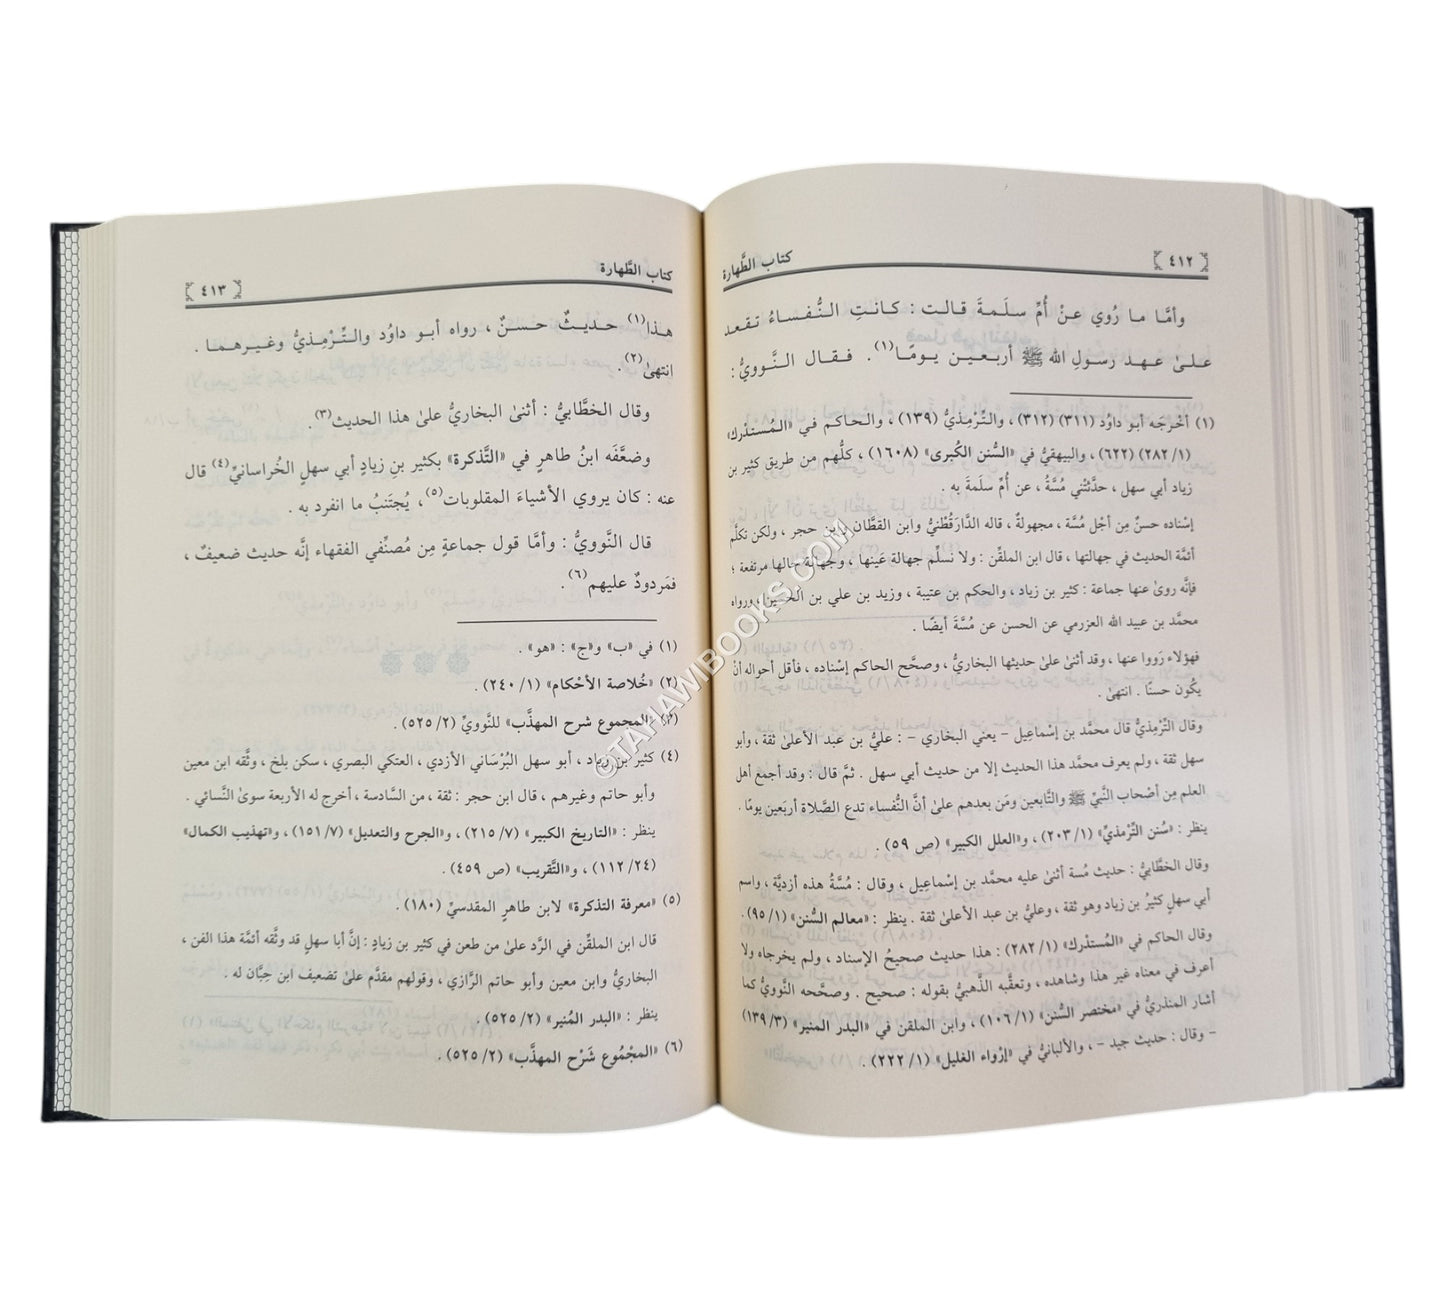 ٤١٢
كتاب الطَّهارة
وأمَّا ما رُوي عنْ أُمِّ سلَمةَ قالت : كانتِ النُّفساءُ تقعد
علىٰ عهد رسولِ الله ﷺ أربعين يومًا(١). فقال النَّوويُّ :
(١) أخرَجَه أبو داوُد (٣١١) (٣١٢) ، والتِّرْمِذيُّ (١٣٩) ، والحاكم في «المُستدْرك»
(١/ ٢٨٢) (٦٢٢) ، والبيهقيُّ في «السُّنن الكُبرى» (١٦٠٨) ، كلُّهم من طريق كثير بن
زياد أبي سهل ، حدَّثتْني مسَّةُ ، عن أُمِّ سلَمةَ به .
إسْناده حسنٌ مِن أجْل مُسَّة ، مجهولةٌ ، قاله الدَّارَقُطْنيُّ وابن القطَّان وابن حجر ، ولكن تكلَّم
أئمَّة الحديث في جهالتها ، قال ابن الملقّن : ولا نُسلِّم جهالة عَينها ، وجهالة حالها مرتفعة ؛
فإنَّه روىٰ عنها جماعة : كثير بن زياد ، والحكم بن عتيبة ، وزيد بن علي بن الحسين ، ورواه
محمَّد بن عبيد الله العزرمي عن الحسن عن مُسَّةَ أيضًا .
فهؤلاء رَووا عنها ، وقد أثنىٰ علىٰ حديثها البخاريُّ ، وصحَّح الحاكم إسْناده ، فأقل أحواله أنْ
يكُون حسنًا . انتهىٰ .
وقال التِّرْمِذيُّ قال محمَّد بن إسْماعيل – يعني البخاري – : عليُّ بن عبد الأعلىٰ ثقة ، وأبو
سهل ثقة ، ولم يعرف محمَّد هذا الحديث إلا من حديث أبي سهل . ثمَّ قال : وقد أجمع أهل
العلم مِن أصْحاب النَّبيِّ ﷺ والتَّابعين ومَن بعدهم علىٰ أنَّ النُّفساء تدع الصَّلاة أربَعين يومًا .
ينظر : «سُنن التِّرْمذيِّ» (١/ ٢٠٣) ، و«العلل الكبير» (ص ٥٩) .
وقال الخطَّابيُّ : حديث مُسة أثنىٰ عليه محمَّد بن إسْماعيل ، وقال : مُسَّةُ هذه أزديَّة ، واسم
أبي سهلٍ كثيرُ بن زياد وهو ثقة ، وعليُّ بن عبد الأعلىٰ ثقة . ينظر : «معالم السُّنن» (١/ ٩٥) .
وقال الحاكم في «المُستدْرك» (١/ ٢٨٢) : هذا حديث صحيحُ الإسناد ، ولم يخرجاه ولا
أعرف في معناه غير هذا وشاهده ، وتعقَّبه الذَّهبيُّ بقوله : صحيح . وصحَّحه النَّوويُّ كما
أشار المنذريُّ في «مختصر السُّنن» (١/ ١٠٦) ، وابن الملقن في «البدر المنير» (٣/ ١٣٩)
– وقال : حديث جيد – ، والألبانيُّ في «إرْواء الغليل» (١/ ٢٢٢) .
كتاب الطَّهارة
٤١٣
هذا(١) حديثٌ حسنٌ ، رواه أبو داوُد والتِّرْمِذيُّ وغيرهما .
انتهىٰ(٢).
وقال الخطَّابيُّ : أثنىٰ البخاريُّ علىٰ هذا الحديث(٣).
وضعَّفَه ابنُ طاهرٍ في «التَّذكرة» بكثير بنِ زيادٍ أبي سهلٍ الخُراسانيِّ(٤) قال
عنه : كان يروي الأشياءَ المقلوبات(٥)، يُجتَنبُ ما انفرد به .
قال النَّوويُّ : وأمَّا قول جماعةٍ مِن مُصنِّفي الفقهاء إنَّه حديث ضعيفٌ ،
فمَردودٌ عليهم(٦).
(١) في «ب» و«ج» : «هو» .
(٢) «خُلاصة الأحْكام» (١/ ٢٤٠) .
(٣) «المجموع شرح المهذَّب» للنَّوويِّ (٢/ ٥٢٥) .
(٤) كثير بن زياد ، أبو سهل البُرْساني الأزدي ، العتكي البصري ، سكن بلخ ، وثَّقه ابن معين
وأبو حاتم وغيرهم ، قال ابن حجر : ثقة ، من السَّادسة ، أخرج له الأربعة سوىٰ النَّسائي .
ينظر : «التاريخ الكبير» (٧/ ٢١٥) ، و«الجرح والتعديل» (٧/ ١٥١) ، و«تهذيب الكمال»
(٢٤/ ١١٢) ، و«التَّقريب» (ص ٤٥٩) .
(٥) «معرفة التذكرة» لابن طاهرٍ المقدسيِّ (١٨٠) .
قال ابن الملقِّن في الرَّد علىٰ من طعن في كثير بن زيادٍ : إنَّ أبا سهلٍ قد وثَّقه أئمَّة هذا الفن ،
البخاريُّ وابن معين وأبو حاتم الرَّازي ، وقولهم مقدَّم علىٰ تضعيف ابن حِبَّان له .
ينظر : «البدر المُنير» (٢/ ٥٢٥) .
(٦) «المجْمُوع شَرْح المهذَّب» (٢/ ٥٢٥) .
©TAHAWIBOOKS.COM